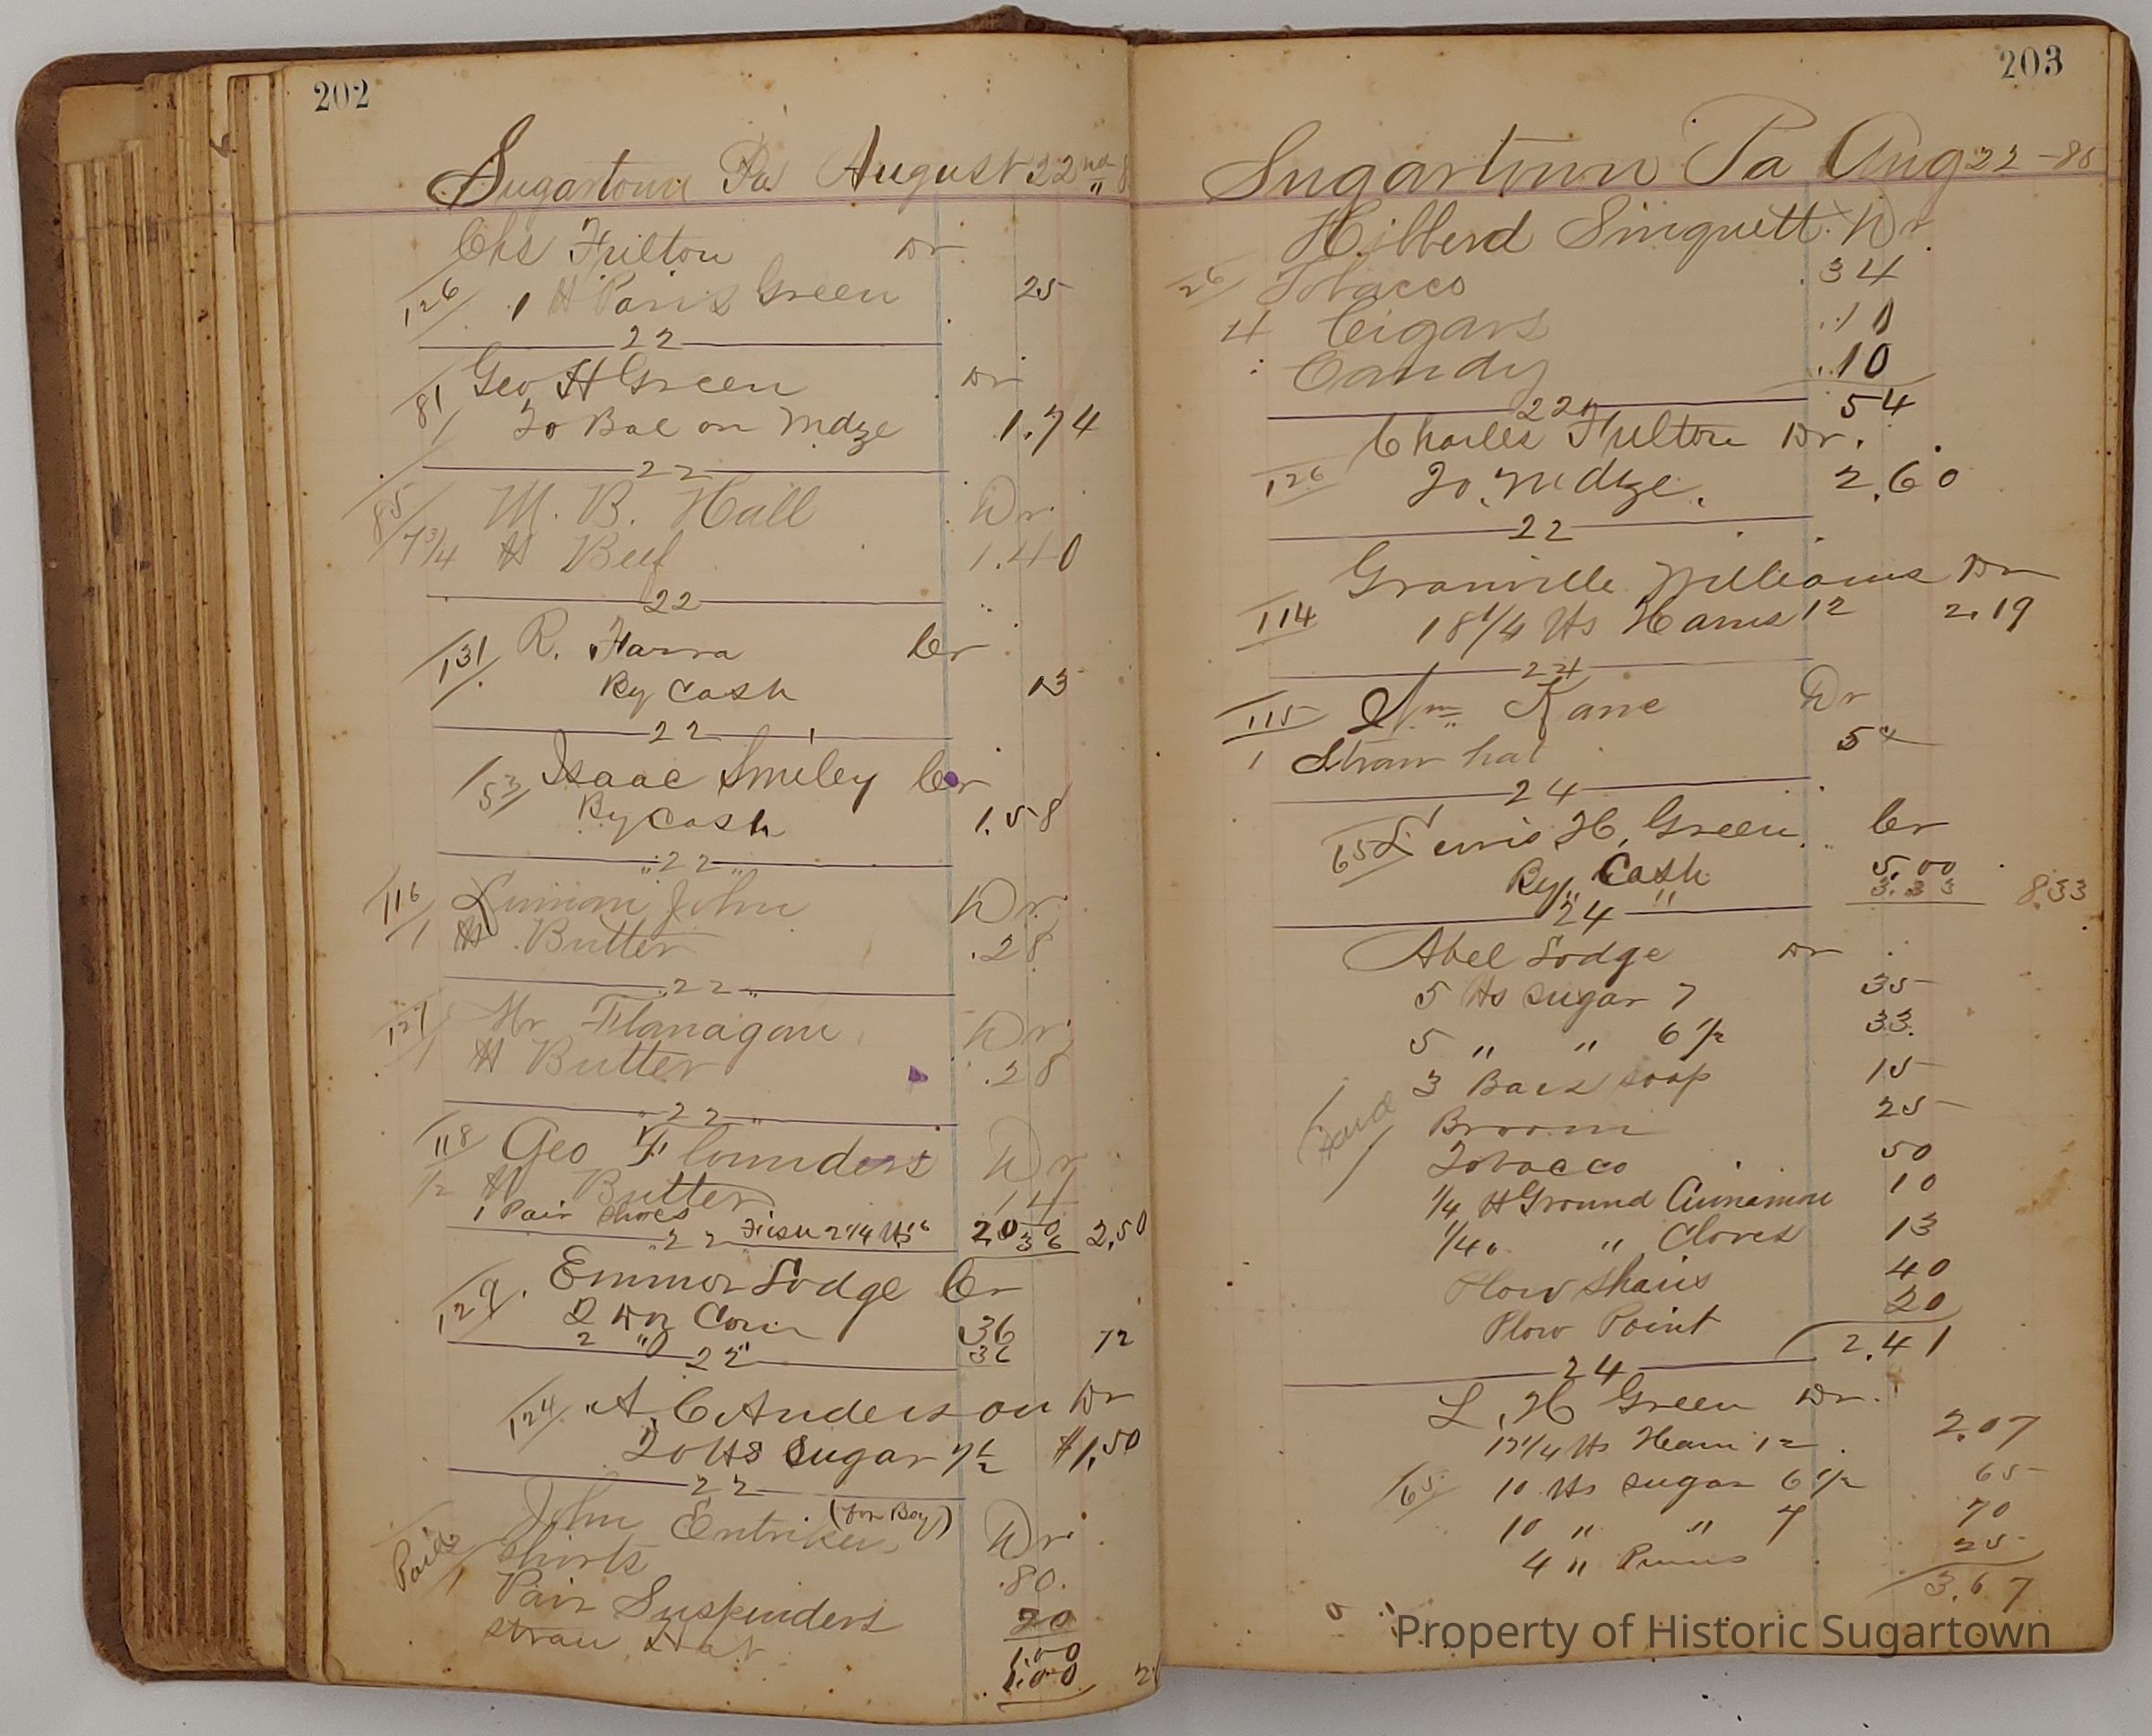 202
Sugartown Pa August 22nd
Chs Fulton Dr
126 1 lb Paris Green 25
22
Geo H Green Dr
81 To Bal on Mdze 1.74
22
85 M. B. Hall Dr.
7 3/4 lb Beef 1.40
22
131 R. Farra Cr
By Cash 13
22
53 Isaac Smiley Cr
By Cash 1.58
22
116 John Dr.
1 lb Butter .28
22
127 Mr Flanagan Dr.
1 lb Butter .28
22
118 Geo Flounders Dr
1/2 lb Butter 14
1 Pair Shoes 2.00
22 Fish 2 1/4 lbs 16 36 2,50
129. Emmor Lodge Cr
2 Doz Corn 36
2 " 36 72
22
124 A. C Anderson Dr
20 lbs Sugar 7 1/2 $1,50
22
John Entriken (for Boy) Dr.
Paid Shirts .80.
1 Pair Suspenders 20
Straw Hat 1.00
1.00 2
203
Sugartown Pa Aug 22 -85
Hibberd Singuett Dr.
26 Tobacco .34
4 Cigars .10
Candy .10
22 54
Charles Fulton Dr.
126 To Mdze. 2.60
22
Granville Williams Dr
114 18 1/4 lbs Hams 12 2.19
24
115 Wm Kane Dr
1 Straw hat
24
65 Lewis H, Green Cr
By Cash 5.00
" " 3.33 8.33
24
Abel Lodge Dr
5 lbs Sugar 7 35
5 " " 6 1/2 33.
3 Bars soap 15
Broom 25
Tobacco 50
1/4 lb Ground Cinnamon 10
1/4 " " Cloves 13
Plow Shairs 40
Plow Point 20
2.41
24
L. H Green Dr.
17 1/4 lbs Ham 12 2.07
65 10 lbs sugar 6 1/2 65
10 " " 7 70
4 " Pruns 25
3.67
Property of Historic Sugartown